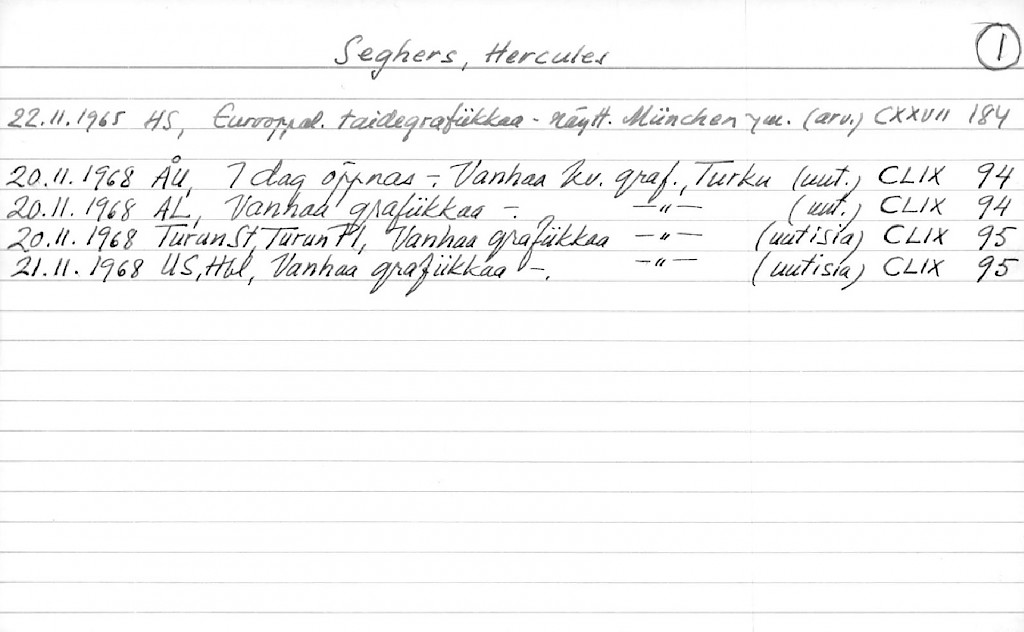 Seghers, Hercules
1
22.11.1965 HS, Eurooppal. taidegrafiikkaa - näytt. München ym. (arv.) CXXVII 184
20.11.1968 ÅU, I dag öppnas -. Vanhaa kv. graf., Turku (uut.) CLIX 94
20.11.1968 AL, Vanhaa grafiikkaa -. —"— (uut.) CLIX 94
20.11.1968 TurunSt, TurunPl, Vanhaa grafiikkaa —"— (uutisia) CLIX 95
21.11.1968 US, Hbl, Vanhaa grafiikkaa -. —"— (uutisia) CLIX 95